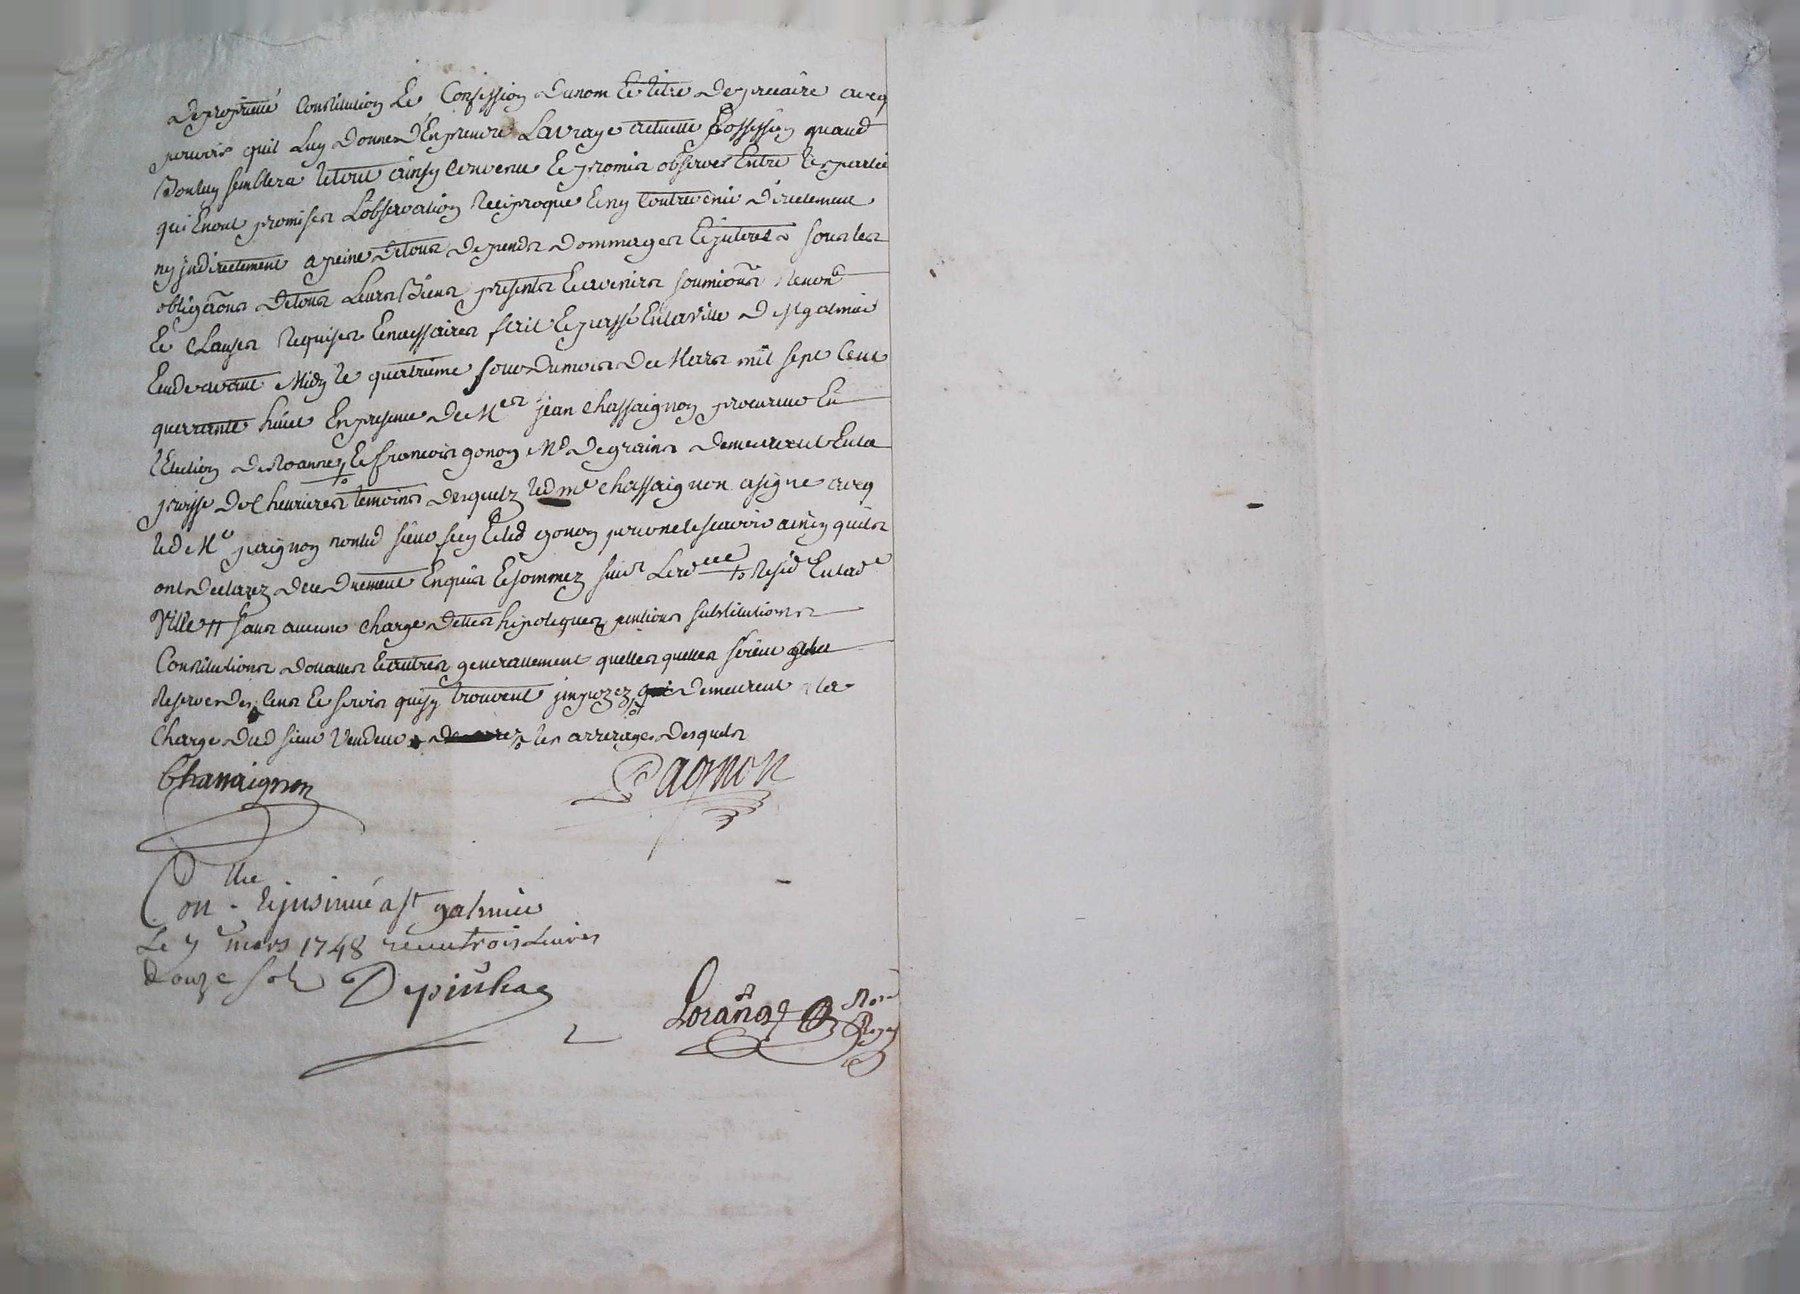 de proprietté Constitution et Confession du nom et titre de precaire avec
pouvoir quil luy donne d'En prendre La vraye actuelle possession quand
Bon luy semblera le tout ainsy Convenu et promis observer Entre les partie
qui Enont promis L'observation Reciproque et ny Contrevenir directement
ny jndirectement a peine de tous depends dommages et jnterets sous les
obligãons de tous Leurs Biens presents et avenirs soumions Renonc
et Clauses Requises et necessaires fait et passé En la ville de st galmier
Etude avant Midy le quatrieme jour du mois de Mars mil sept Cent
quarrante huict En presence de Mes jean Chassaignon procureur En
l'Election de Roanne et francois gonon Md de grains demeurant En la
proisse de Chevrieres temoins desquelz led me Chassaignon a signé avec
led Me pagnon non led sieur et led gonon pour ne le scavoir ainsy quils
ont declarez de ce duement Enquis et sommez Resid En lad
Ville sans aucune Charge dettes hipoteques pentions substitutions
Constitutions douaires et autres generalement quelles quelles soient
Reserve des Cens et servis quisy trouvent jmpozez demeurent a la
Charge dud sieur Vendeur les arrerages desquels
Chassaignon Pagnon
Conlle et jnsinué a st galmier
Le 7 mars 1748 receu trois Livres
douze sols